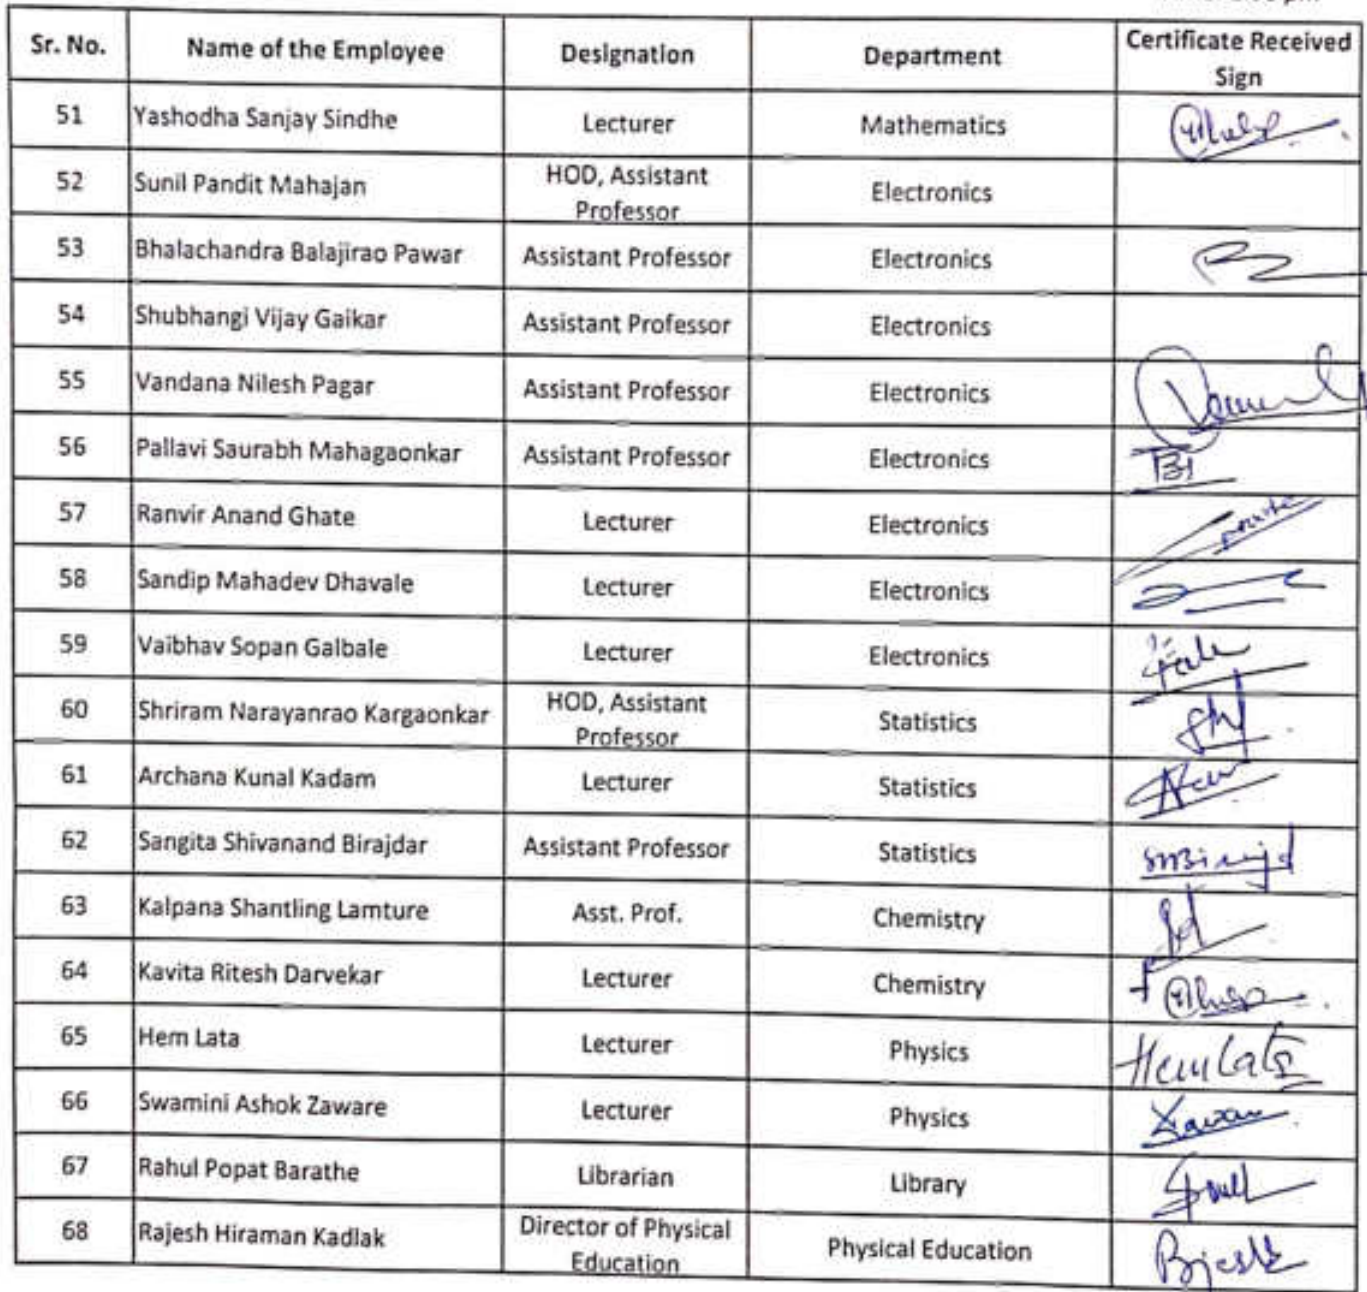 Sr. No. Name of the Employee Designation Department Certificate Received Sign
51 Yashodha Sanjay Sindhe Lecturer Mathematics
52 Sunil Pandit Mahajan HOD, Assistant Professor Electronics
53 Bhalachandra Balajirao Pawar Assistant Professor Electronics
54 Shubhangi Vijay Gaikar Assistant Professor Electronics
55 Vandana Nilesh Pagar Assistant Professor Electronics
56 Pallavi Saurabh Mahagaonkar Assistant Professor Electronics
57 Ranvir Anand Ghate Lecturer Electronics
58 Sandip Mahadev Dhavale Lecturer Electronics
59 Vaibhav Sopan Galbale Lecturer Electronics
60 Shriram Narayanrao Kargaonkar HOD, Assistant Professor Statistics
61 Archana Kunal Kadam Lecturer Statistics
62 Sangita Shivanand Birajdar Assistant Professor Statistics
63 Kalpana Shantling Lamture Asst. Prof. Chemistry
64 Kavita Ritesh Darvekar Lecturer Chemistry
65 Hem Lata Lecturer Physics Hemlata
66 Swamini Ashok Zaware Lecturer Physics
67 Rahul Popat Barathe Librarian Library
68 Rajesh Hiraman Kadlak Director of Physical Education Physical Education